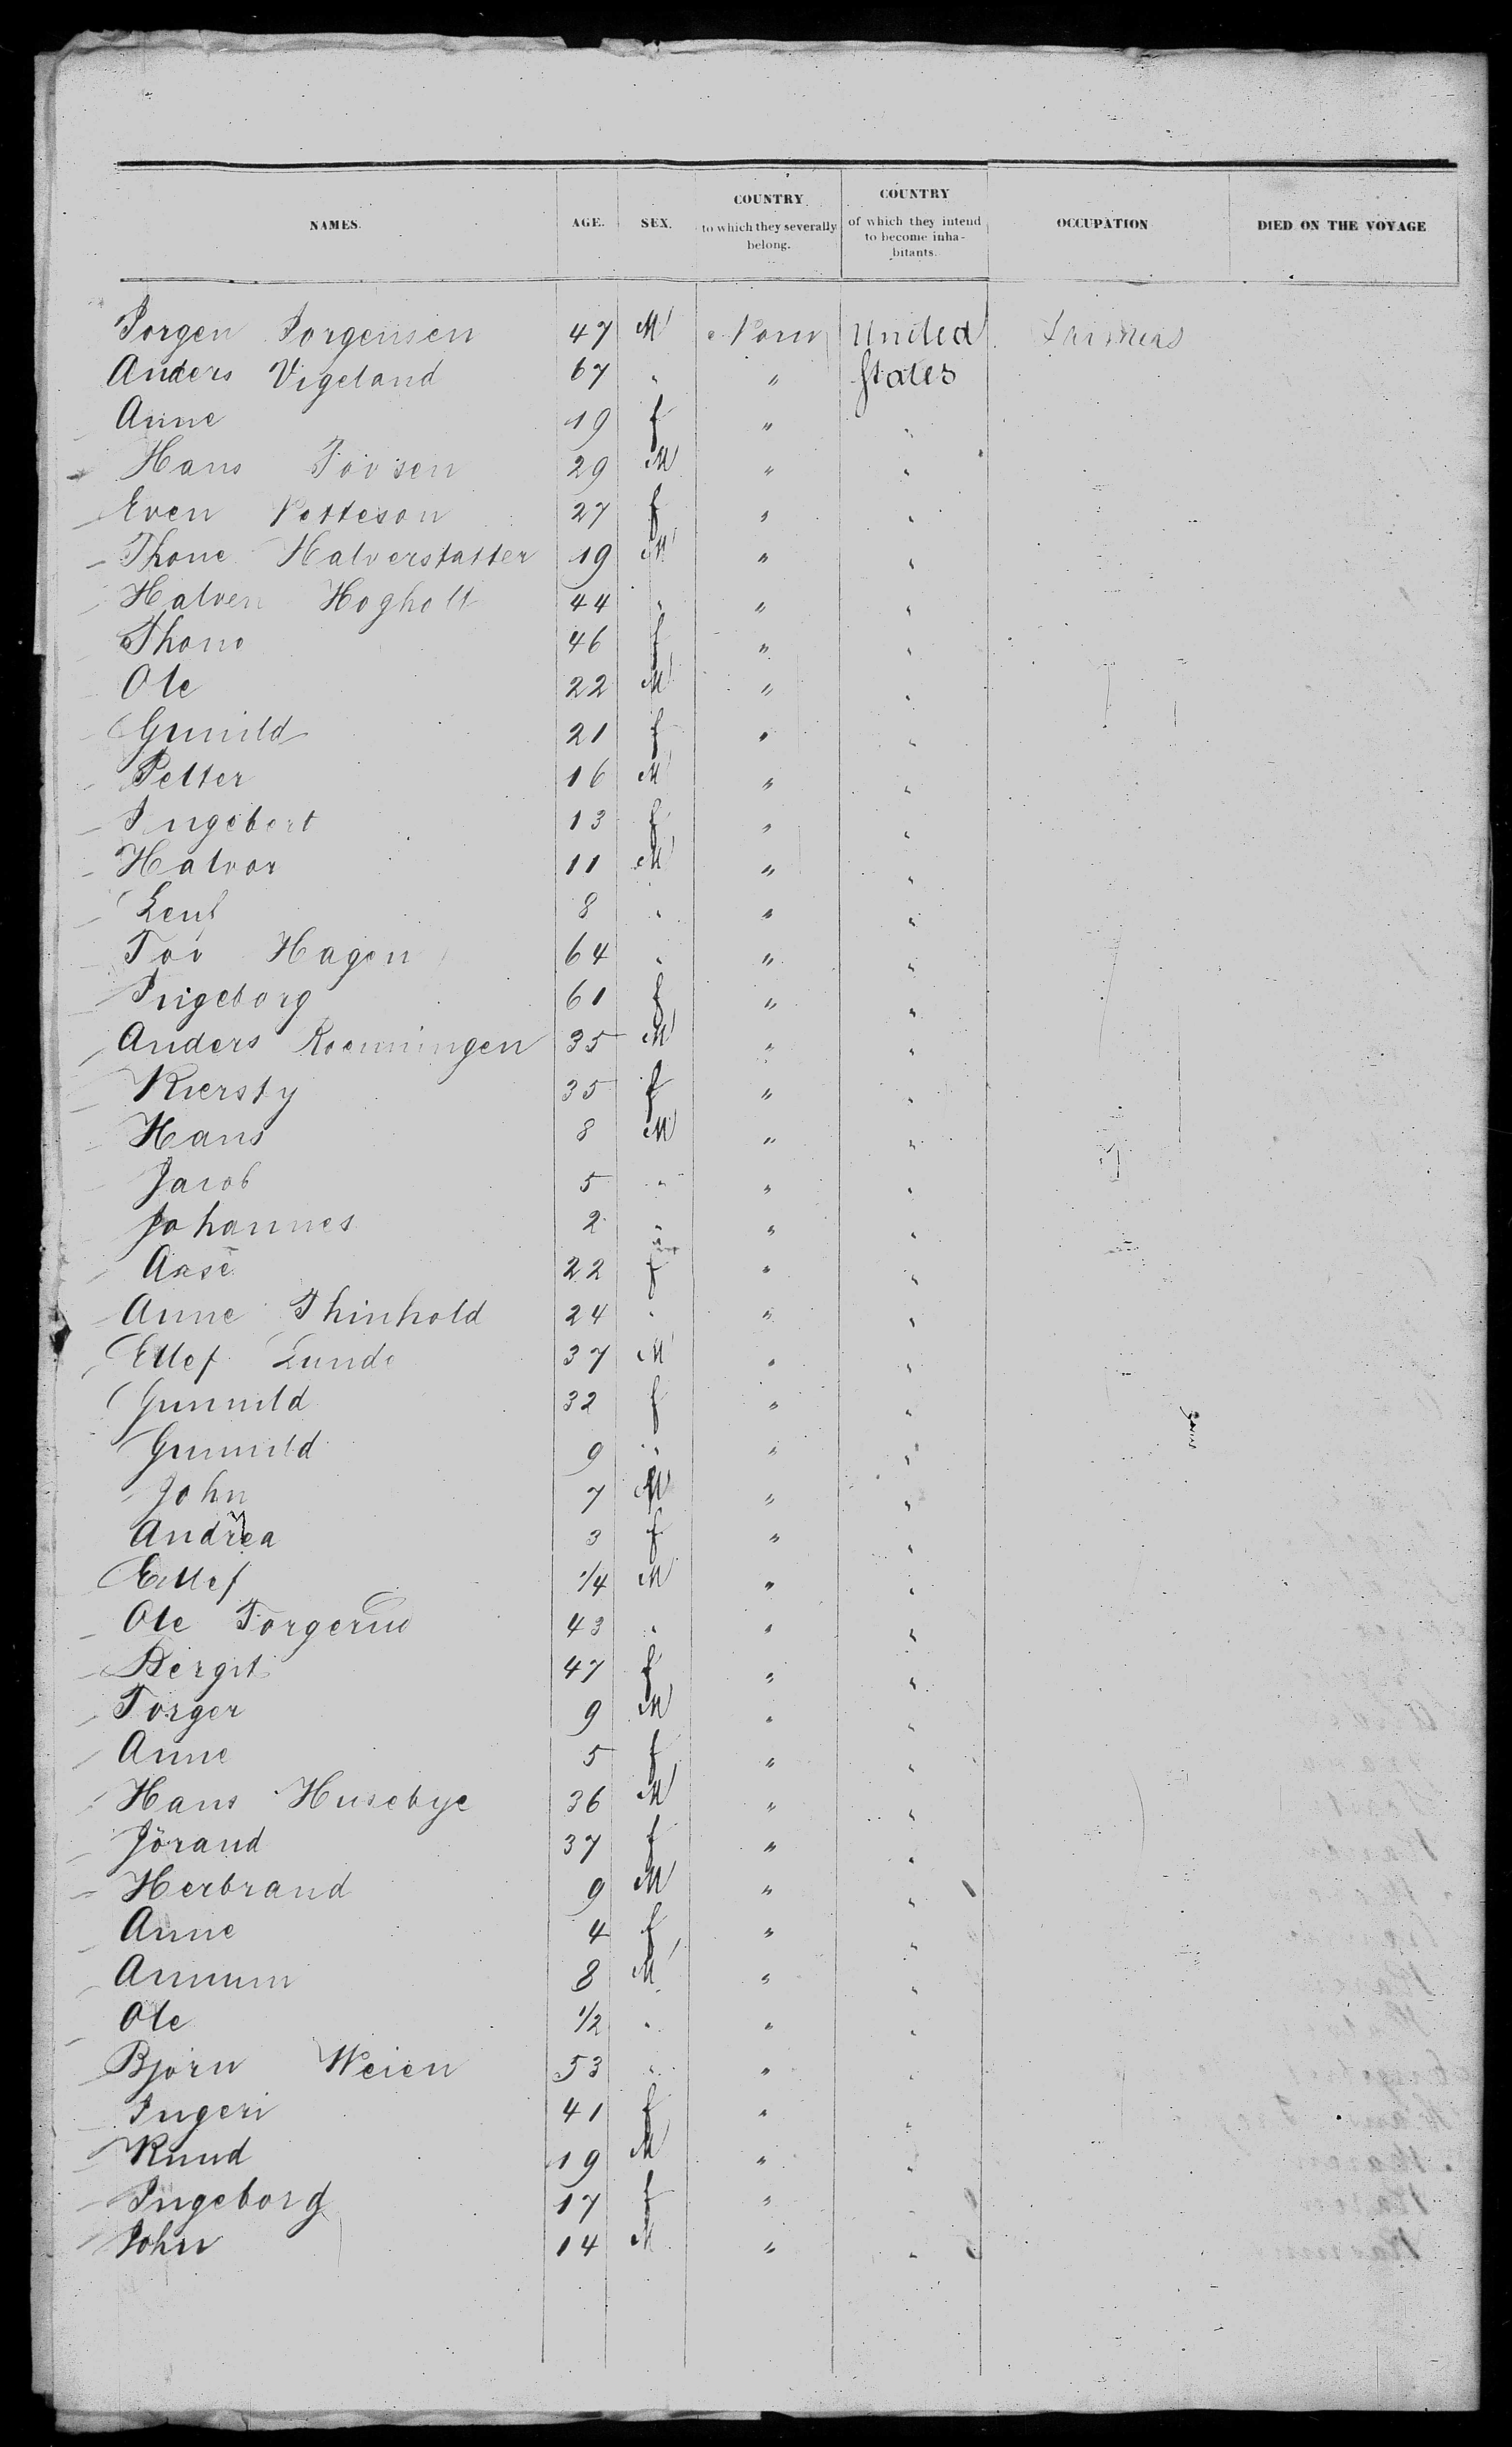 NAMES. AGE. SEX. COUNTRY to which they severally belong. COUNTRY of which they intend to become inhabitants. OCCUPATION DIED ON THE VOYAGE
Jorgen Jorgensen 47 M Norw United
Anders Vigeland 67 " " States
Anne 19 f " "
Hans Tovsen 29 M " "
Even Petteson 27 f " "
Thone Halverstatter 19 M " "
Halven Hogholt 44 " " "
Thono 46 f " "
Ole 22 M " "
Gunild 21 f " "
Petter 16 M " "
Ingebort 13 f " "
Halvor 11 M " "
8 " " "
Tov Hagen 64 " " "
Ingeborg 61 f " "
Anders Roenningen 35 M " "
Kiersty 35 f " "
Hans 8 M " "
Jacob 5 " " "
Johannes 2 " " "
Aase 22 f " "
Anne Thinhold 24 " " "
Ellef Lunde 37 M " "
Gunnild 32 f " "
Gunnild 9 " " "
John 7 M " "
Andrea 3 f " "
Ellef 1/4 M " "
Ole Torgerud 43 " " "
Bergit 47 f " "
Torger 9 M " "
Anne 5 f " "
Hans Husebye 36 M " "
Jörand 37 f " "
Herbrand 9 M " "
Anne 4 f " "
8 M " "
Ole 1/2 " " "
Bjorn Weien 53 " " "
Ingeri 41 f " "
Knud 19 M " "
Ingeborg 17 f " "
John 14 M " "